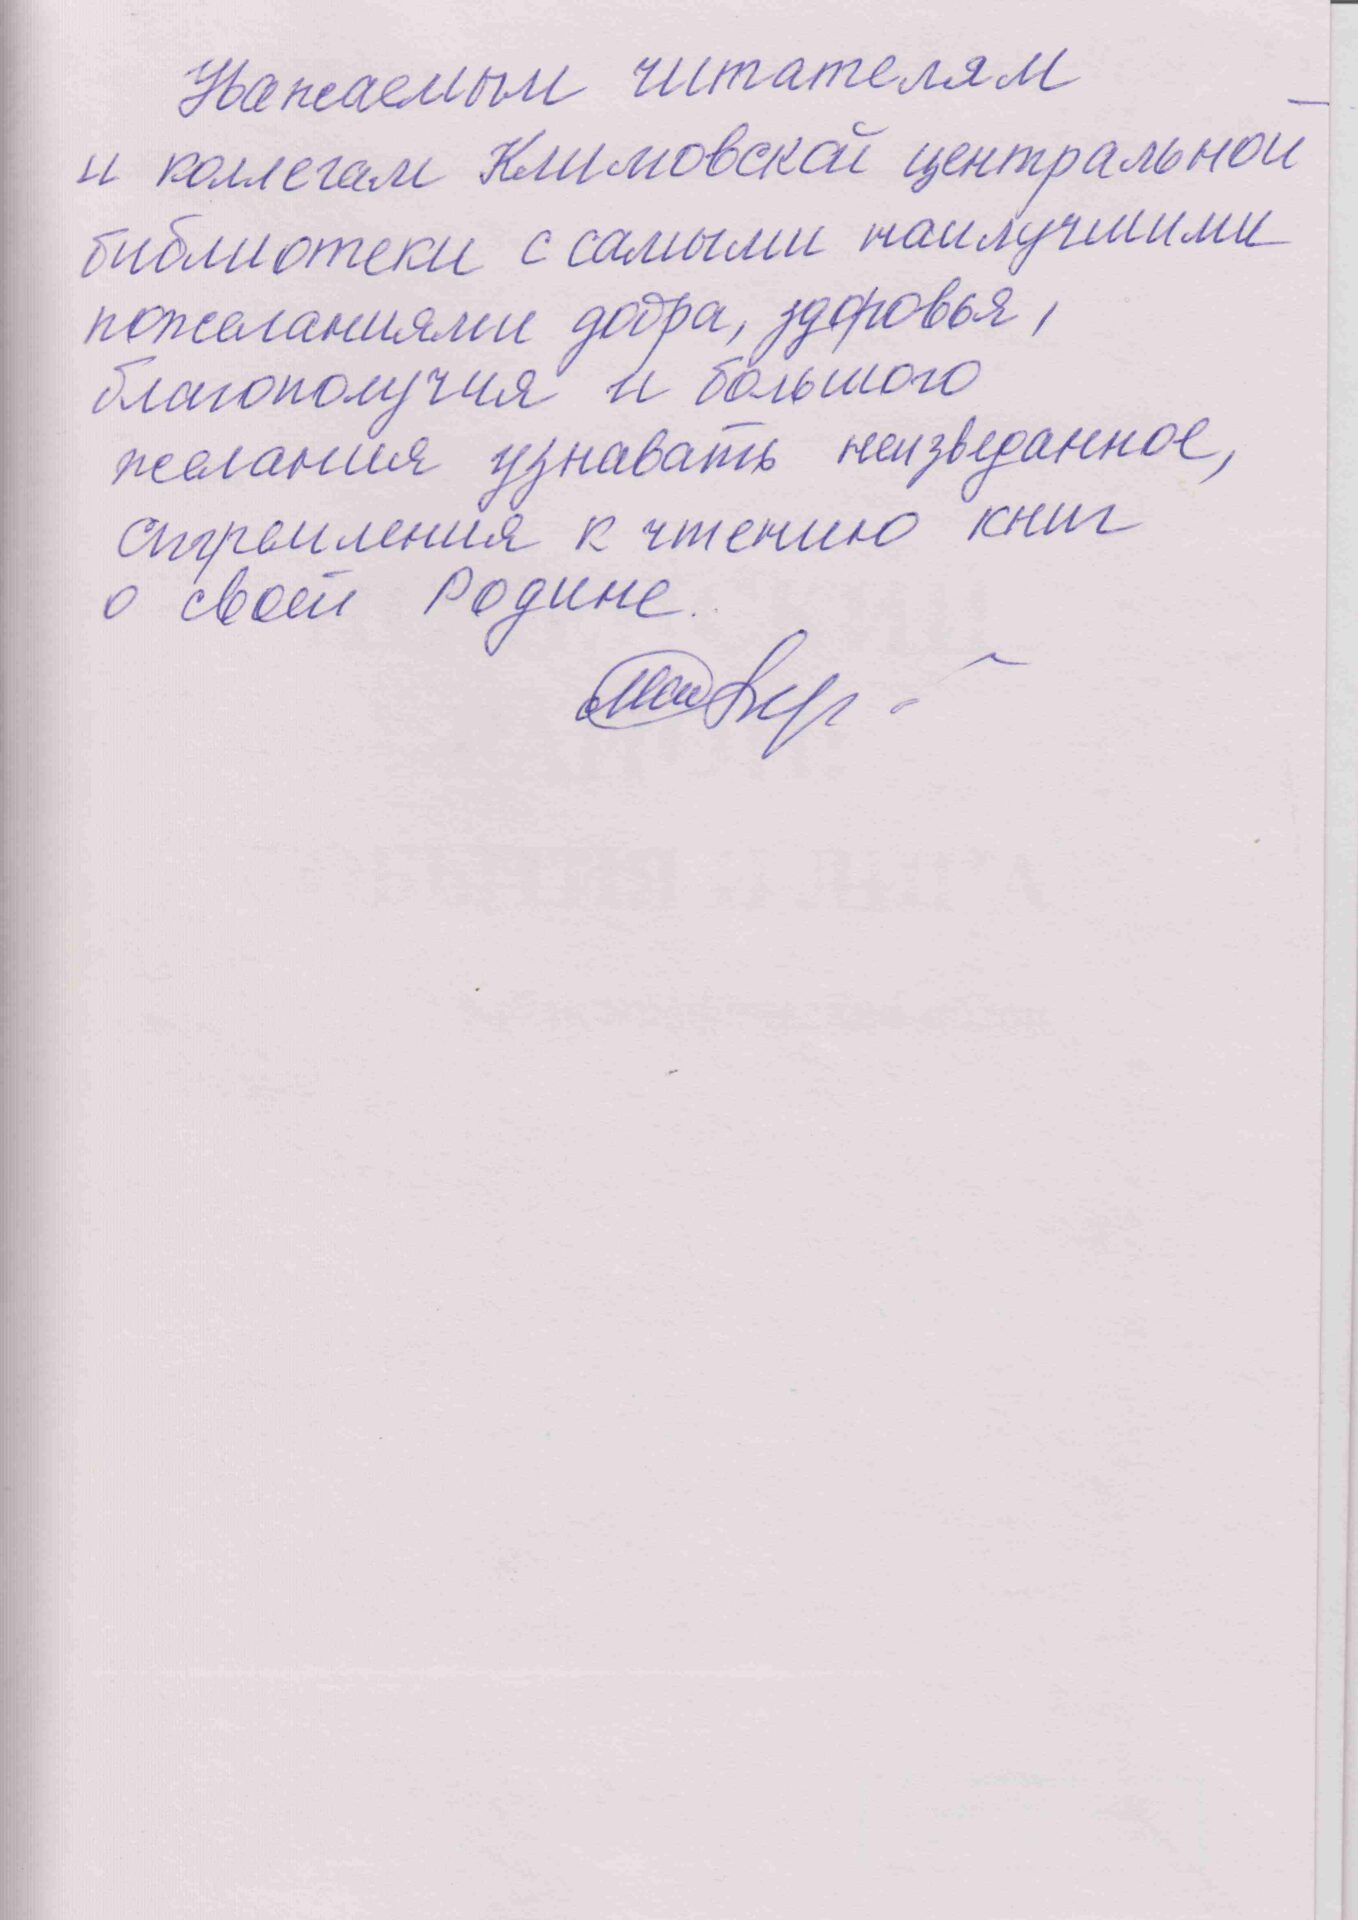 Уважаемым читателям
и коллегам Климовской центральной
библиотеки с самыми наилучшими
пожеланиями добра, здоровья,
благополучия и большого
желания узнавать неизведанное,
стремления к чтению книг
о своей Родине.